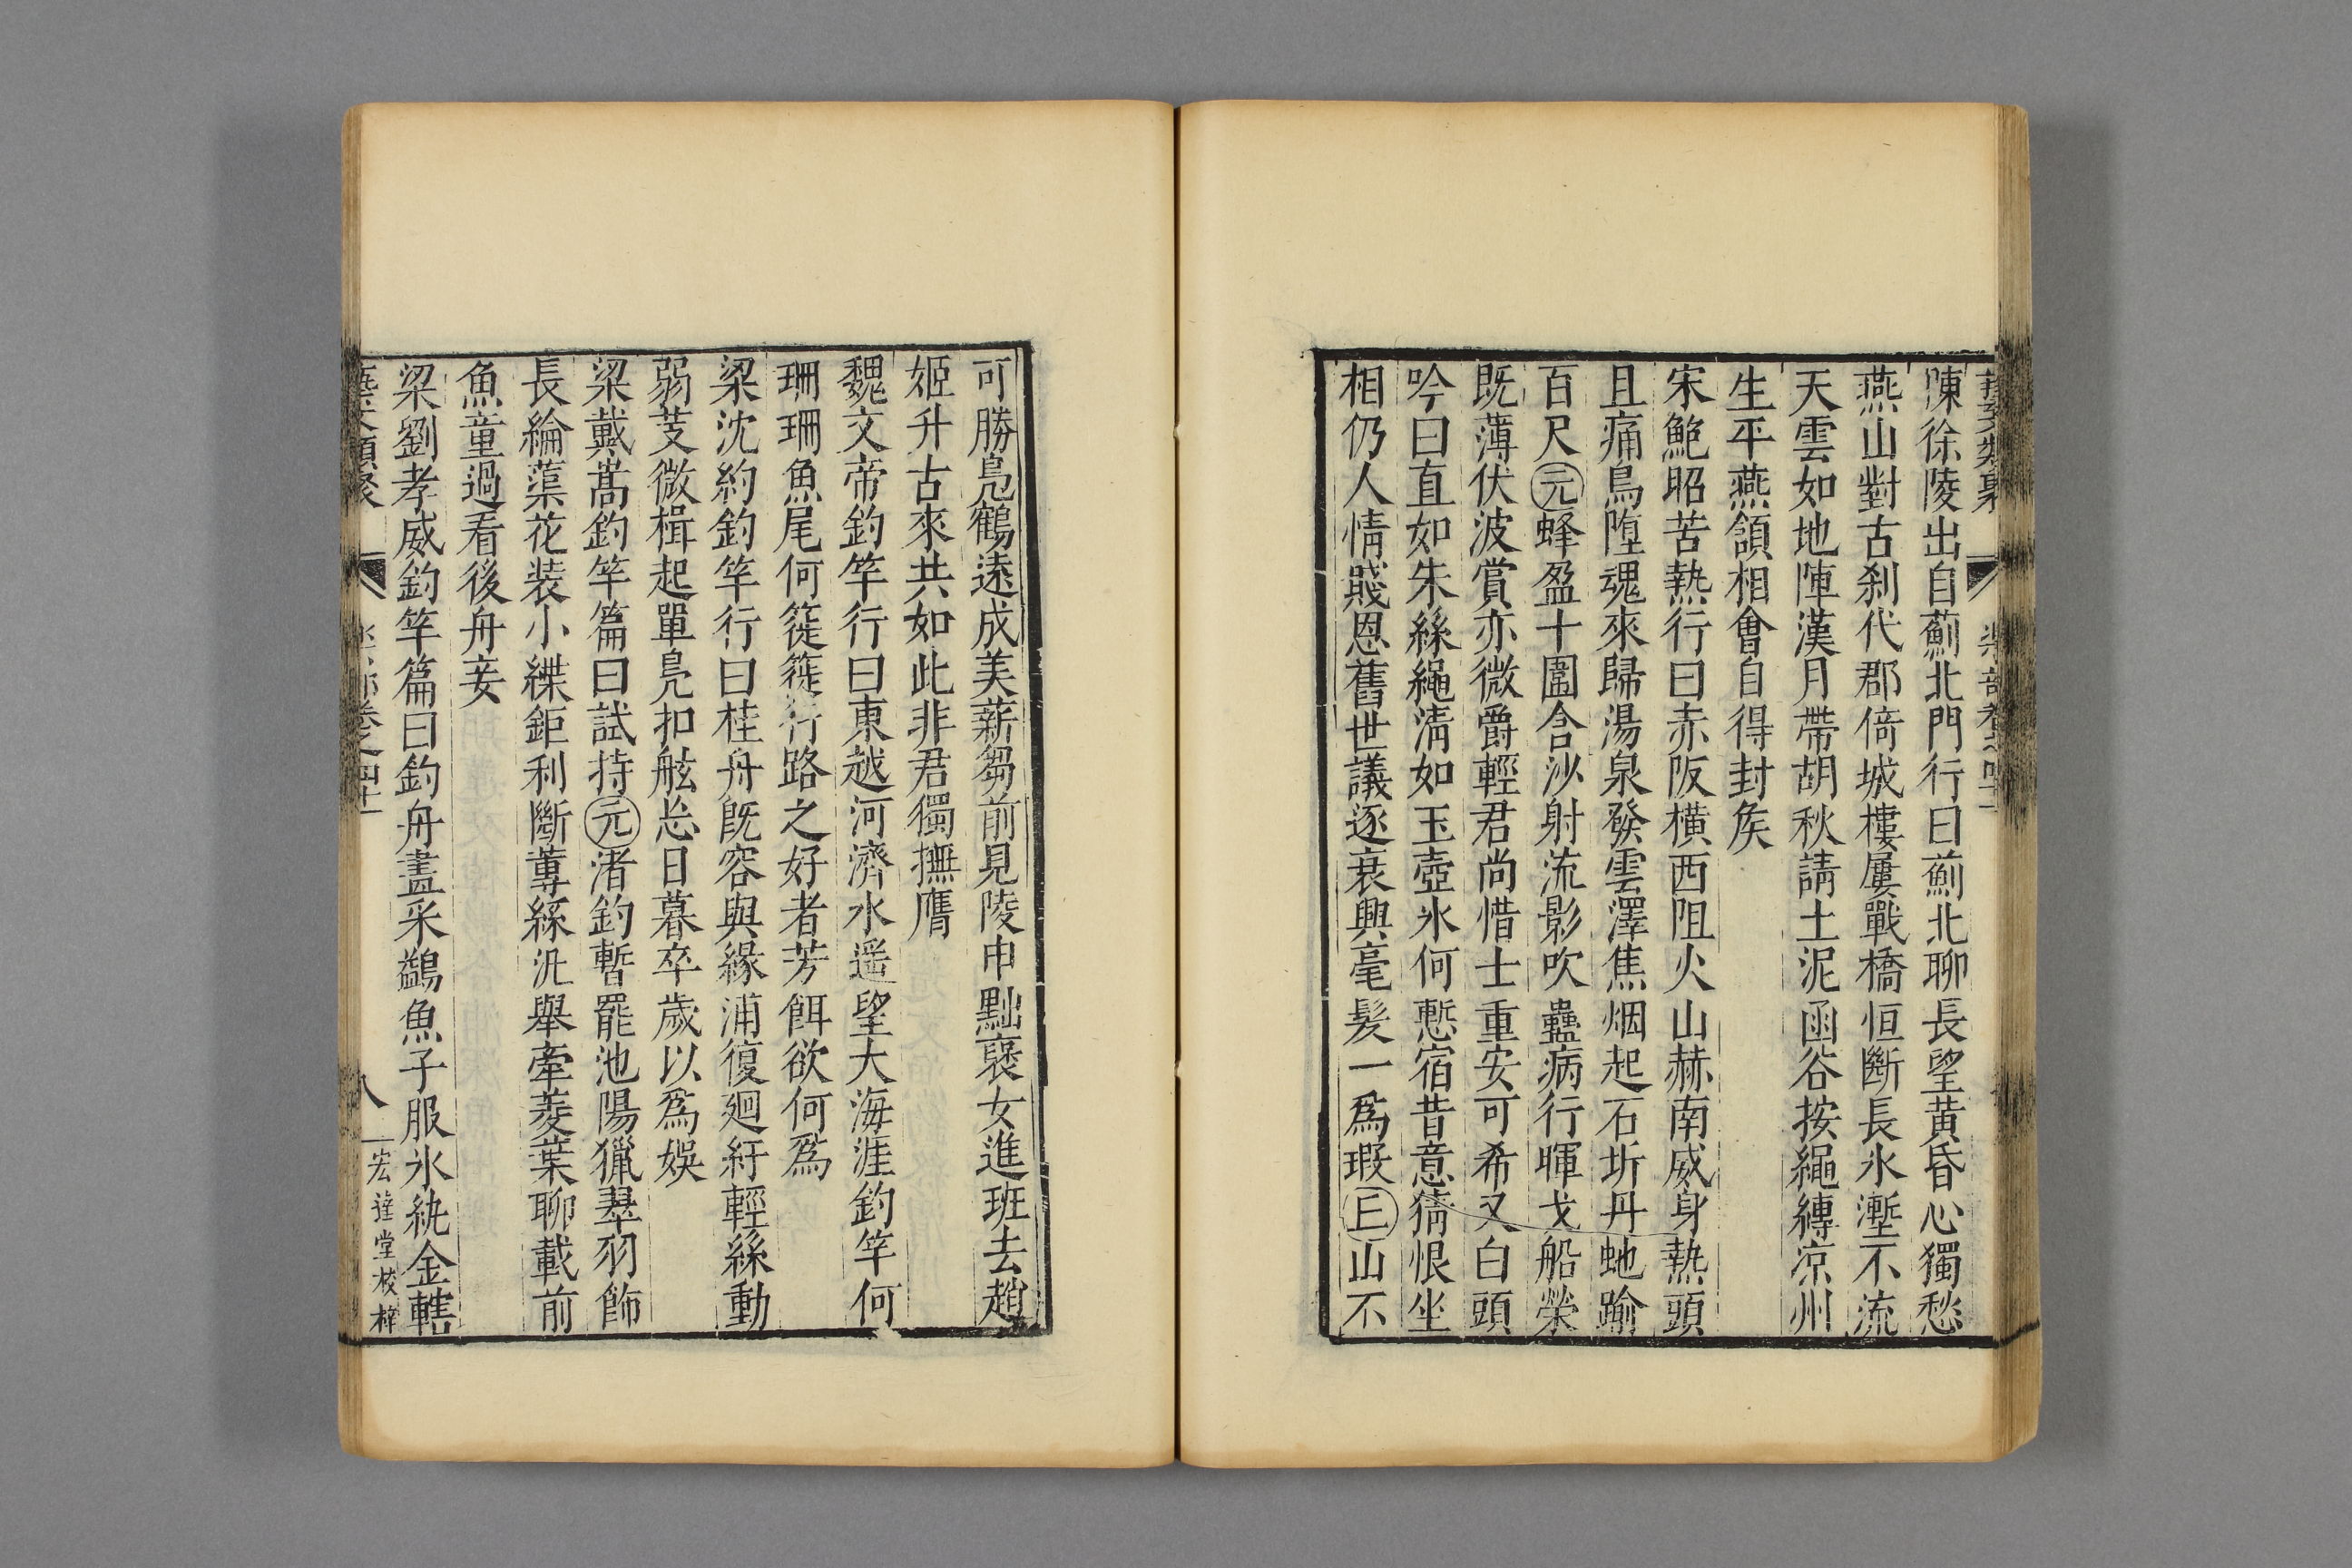 藝文類聚 樂部卷之四十二
陳徐陵出自薊北門行曰薊北聊長望黃昏心獨愁
燕山對古刹代郡倚城樓屢戰橋恒斷長氷塹不流
天雲如地陣漢月帶胡秋請土泥函谷按繩縳凉州
生平燕頷相會自得封矦
宋鮑昭苦熱行曰赤阪橫西阻火山赫南威身熱頭
且痛鳥墮魂來歸湯泉發雲澤焦烟起石圻丹虵踰
百尺元蜂盈十圍含沙射流影吹蠱病行暉戈船榮
既薄伏波賞亦微爵輕君尚惜士重安可希又白頭
吟曰直如朱絲繩淸如玉壺氷何慙宿昔意猜恨坐
相仍人情賤恩舊世議逐衰興毫髮一爲瑕丘山不
可勝鳧鶴遠成美薪芻前見陵申黜襃女進班去趙
姬升古來共如此非君獨撫膺
魏文帝釣竿行曰東越河濟水遥望大海涯釣竿何
珊珊魚尾何簁簁行路之好者芳餌欲何爲
梁沈約釣竿行曰桂舟旣容與緣浦復廻紆輕絲動
弱芰微楫起單鳧扣舷忩日暮卒歲以爲娛
梁戴暠釣竿篇曰試持元渚釣暫罷池陽獵翠羽飾
長綸蕖花装小緤鉅利斷蓴絲汎舉牽菱葉聊載前
魚童過看後舟妾
梁劉孝威釣竿篇曰釣舟畫采鷁魚子服氷紈金轄
藝文類聚 樂部卷之四十二 八 宏達堂校梓